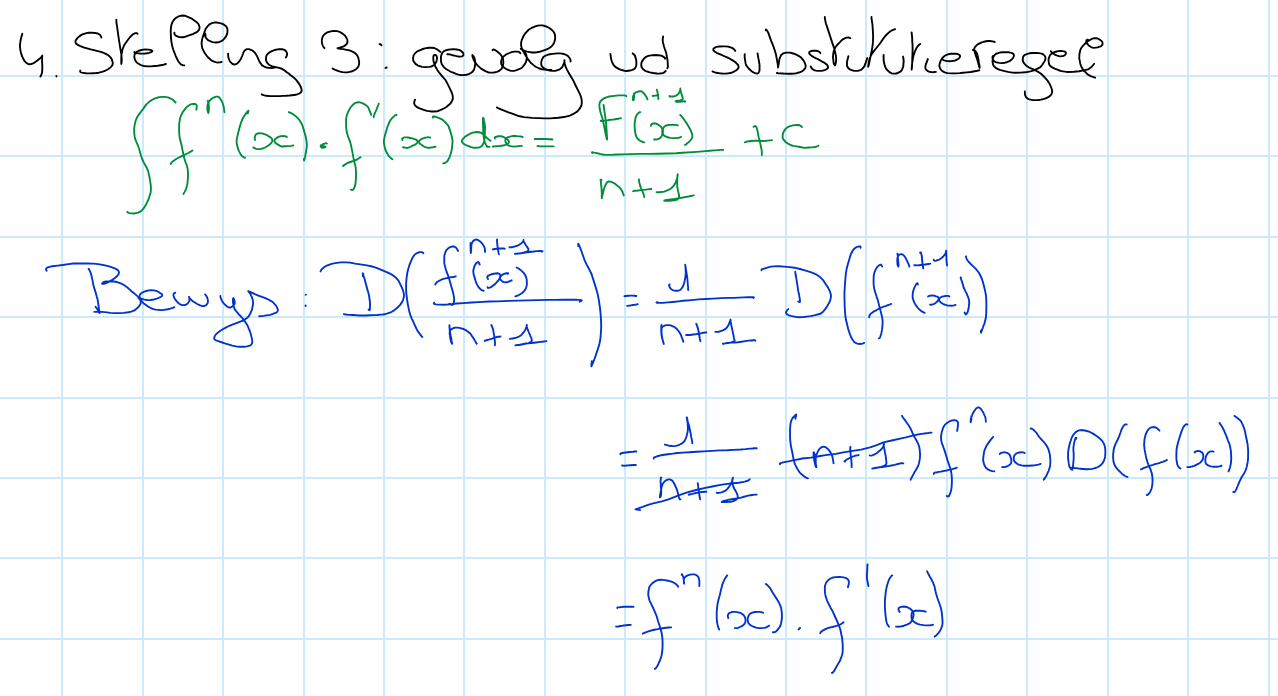 4. Stelling 3: gevolg vd substitutieregel
∫fⁿ(x).f'(x)dx = Fⁿ⁺¹(x)/(n+1) + C
Bewijs: D(fⁿ⁺¹(x)/(n+1)) = 1/(n+1) D(fⁿ⁺¹(x))
= 1/(n+1) (n+1) fⁿ(x) D(f(x))
= fⁿ(x).f'(x)